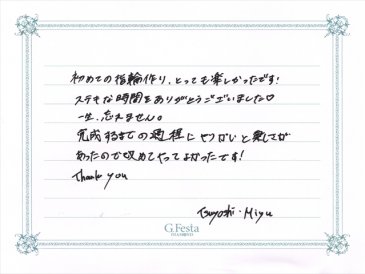 初めての指輪作り、とっても楽しかったです!
ステキな時間をありがとうございました♡
一生、忘れません。
完成するまでの過程に
あったので改めてやってよかったです!
Thank you
Tsuyoshi・Miyu
G.Festa